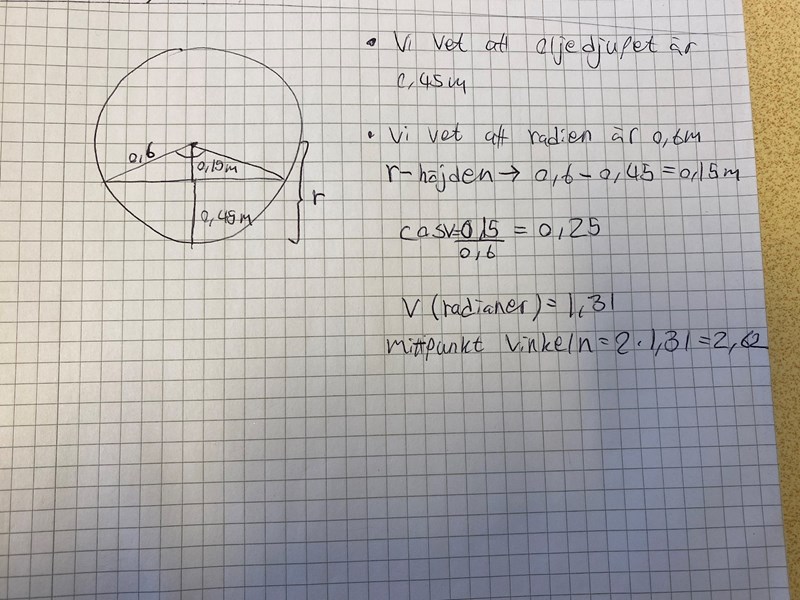 • Vi vet att oljedjupet är
0,45m
0,6
0,15m
0,45m
r
• Vi vet att radien är 0,6m
r-höjden → 0,6 - 0,45 = 0,15m
cosv= 0,15 / 0,6 = 0,25
V (radianer) = 1,31
mittpunkt vinkeln = 2 · 1,31 = 2,62